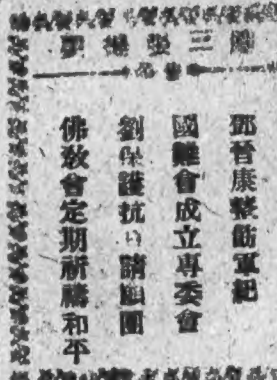 第三張提要
鄧晉康整飭軍紀
國難會成立專委會
劉保護抗日請願團
佛教會定期祈禱和平